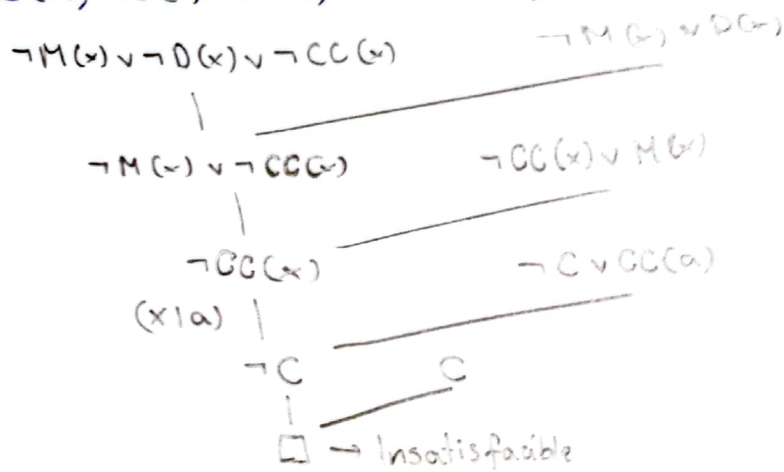 ¬M(x) v ¬D(x) v ¬CC(x) ¬M(x) v D(x)
¬M(x) v ¬CC(x) ¬CC(x) v M(x)
¬CC(x) ¬C v CC(a)
(x|a)
¬C C
□ → Insatisfacible